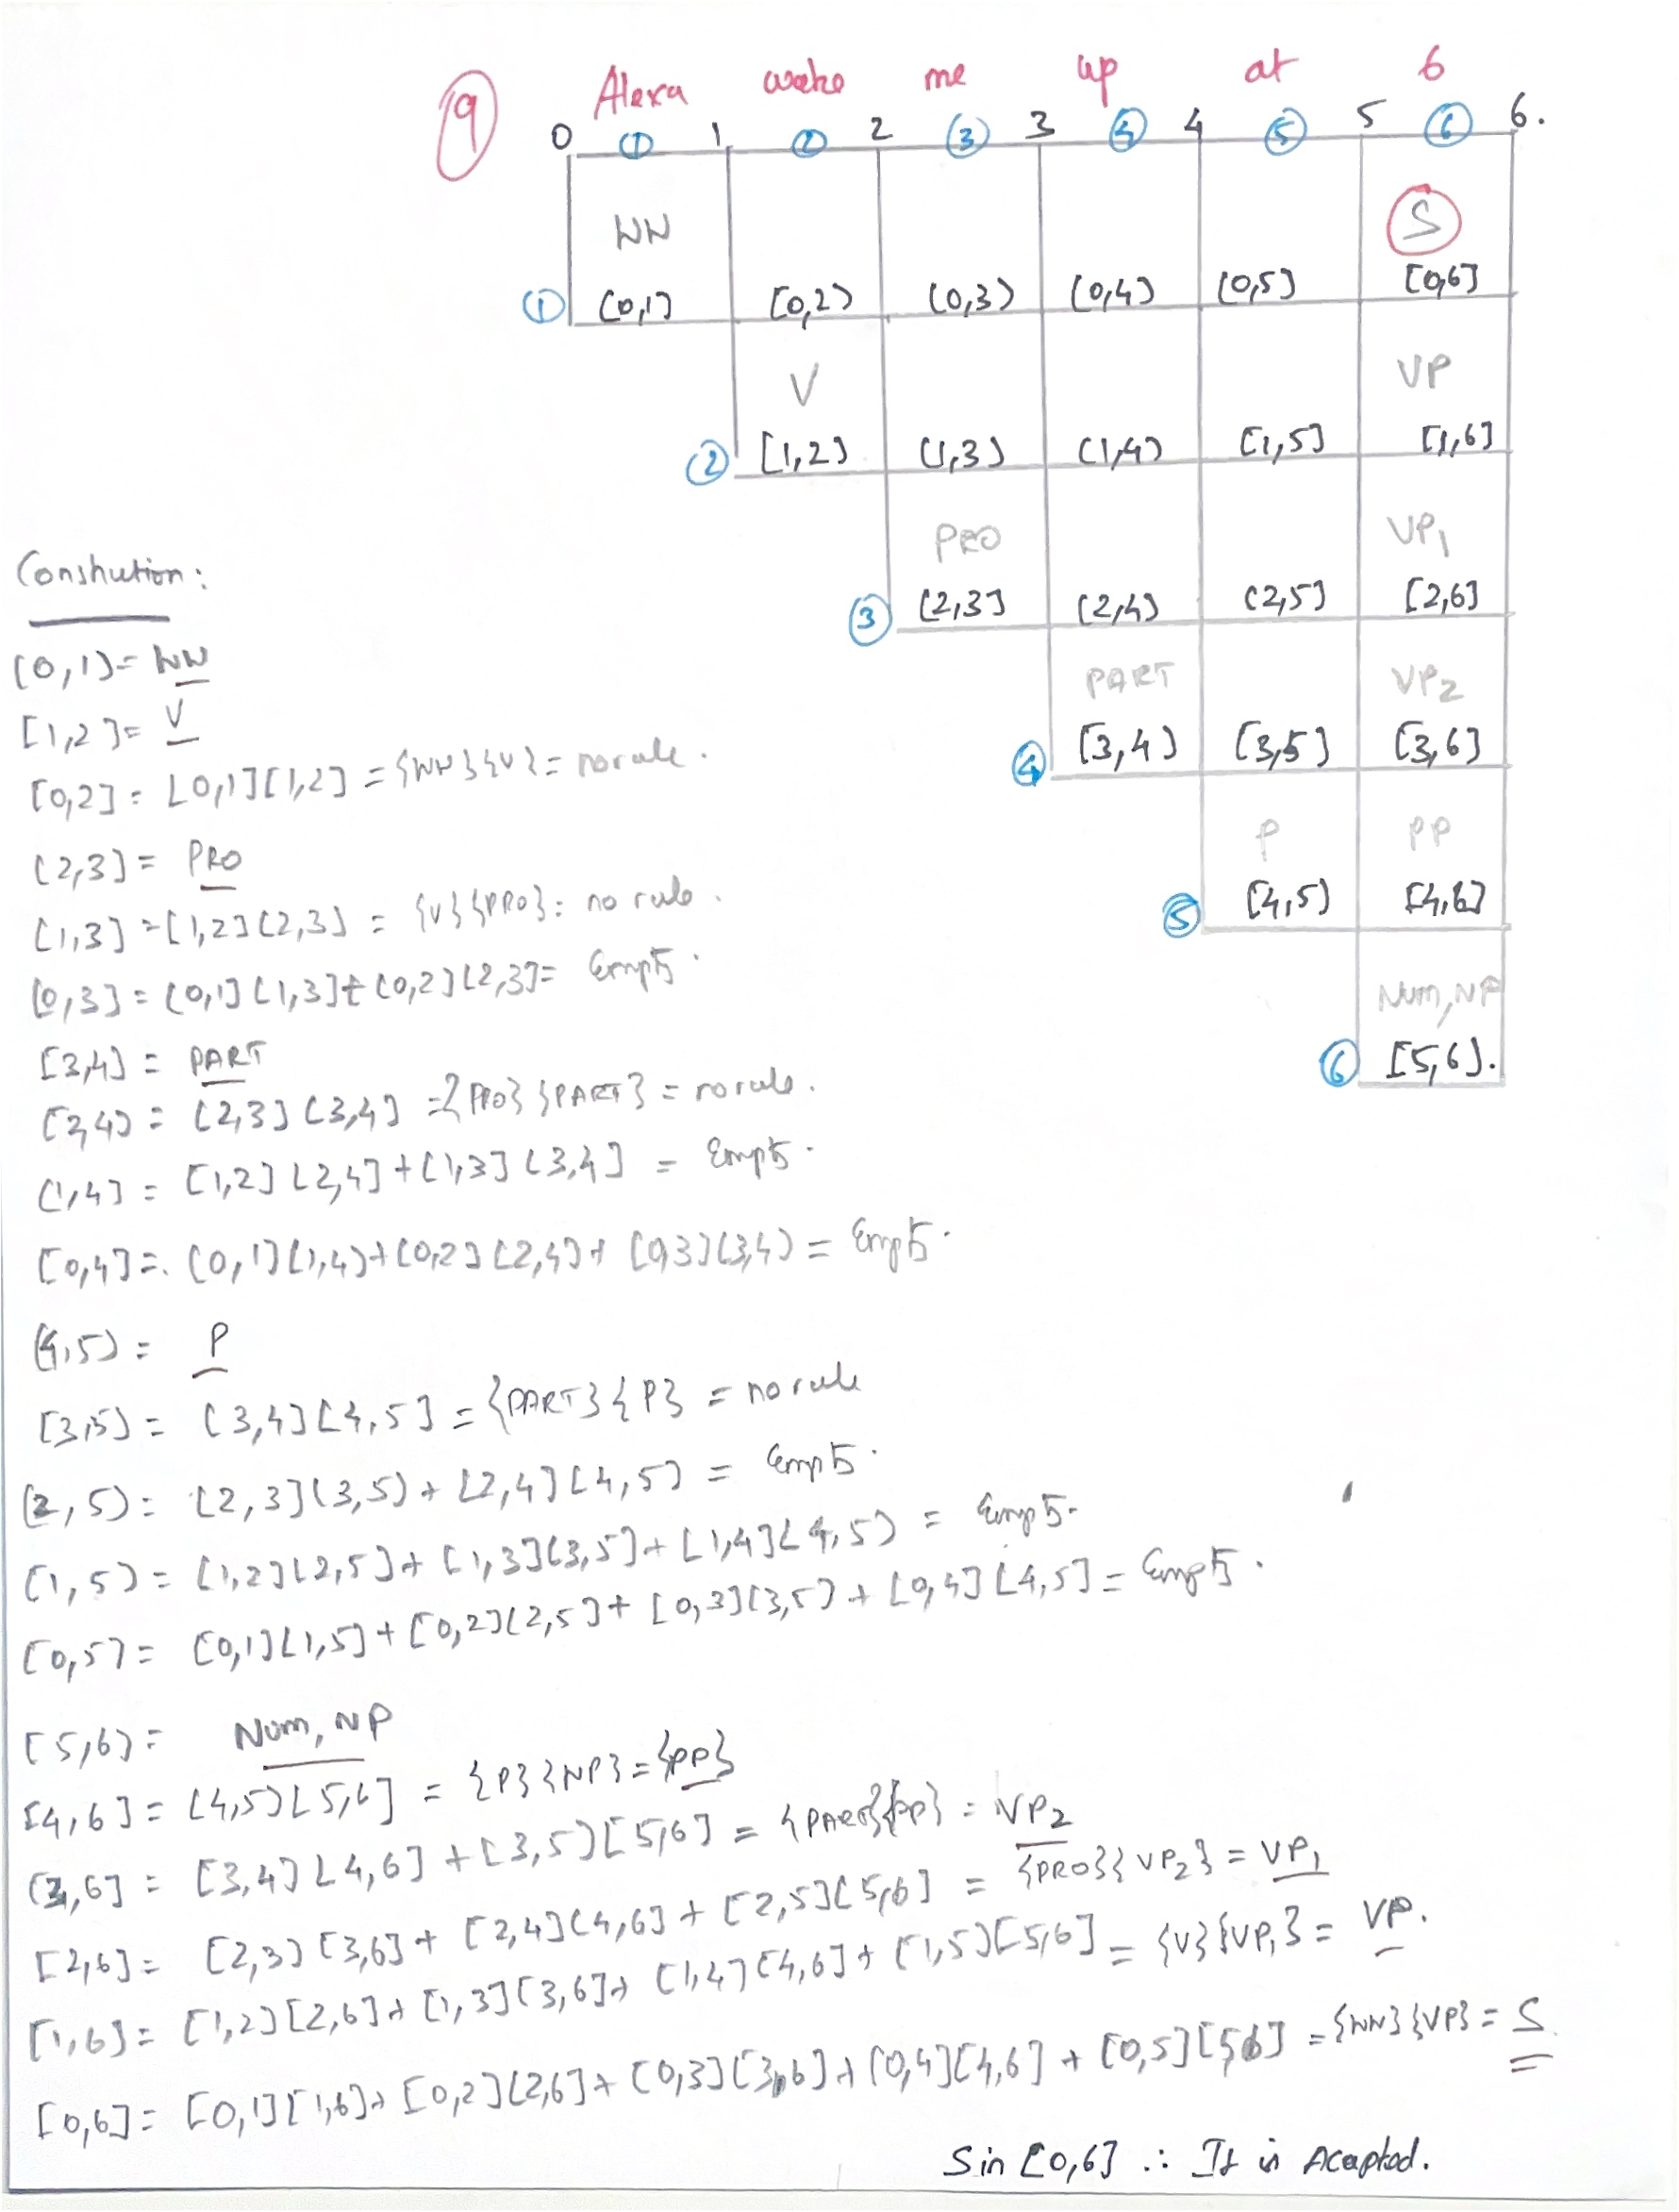 9 Alexa wake me up at 6
0 ① 1 ② 2 ③ 3 ④ 4 ⑤ 5 ⑥ 6.
NN S
① [0,1] [0,2] [0,3] [0,4] [0,5] [0,6]
V VP
② [1,2] [1,3] [1,4] [1,5] [1,6]
PRO VP1
③ [2,3] [2,4] [2,5] [2,6]
PART VP2
④ [3,4] [3,5] [3,6]
P PP
⑤ [4,5] [4,6]
Num, NP
⑥ [5,6].
Constrution:
[0,1] = NN
[1,2] = V
[0,2] = [0,1][1,2] = {NN}{V} = no rule.
[2,3] = PRO
[1,3] = [1,2][2,3] = {V}{PRO} = no rule.
[0,3] = [0,1][1,3] + [0,2][2,3] = Empty.
[3,4] = PART
[2,4] = [2,3][3,4] = {PRO}{PART} = no rule.
[1,4] = [1,2][2,4] + [1,3][3,4] = Empty.
[0,4] = [0,1][1,4] + [0,2][2,4] + [0,3][3,4] = Empty.
[4,5] = P
[3,5] = [3,4][4,5] = {PART}{P} = no rule
[2,5] = [2,3][3,5] + [2,4][4,5] = Empty.
[1,5] = [1,2][2,5] + [1,3][3,5] + [1,4][4,5] = Empty.
[0,5] = [0,1][1,5] + [0,2][2,5] + [0,3][3,5] + [0,4][4,5] = Empty.
[5,6] = Num, NP
[4,6] = [4,5][5,6] = {P}{NP} = {PP}
[3,6] = [3,4][4,6] + [3,5][5,6] = {PART}{PP} = VP2
[2,6] = [2,3][3,6] + [2,4][4,6] + [2,5][5,6] = {PRO}{VP2} = VP1
[1,6] = [1,2][2,6] + [1,3][3,6] + [1,4][4,6] + [1,5][5,6] = {V}{VP1} = VP.
[0,6] = [0,1][1,6] + [0,2][2,6] + [0,3][3,6] + [0,4][4,6] + [0,5][5,6] = {NN}{VP} = S
S in [0,6] ∴ It is Accepted.